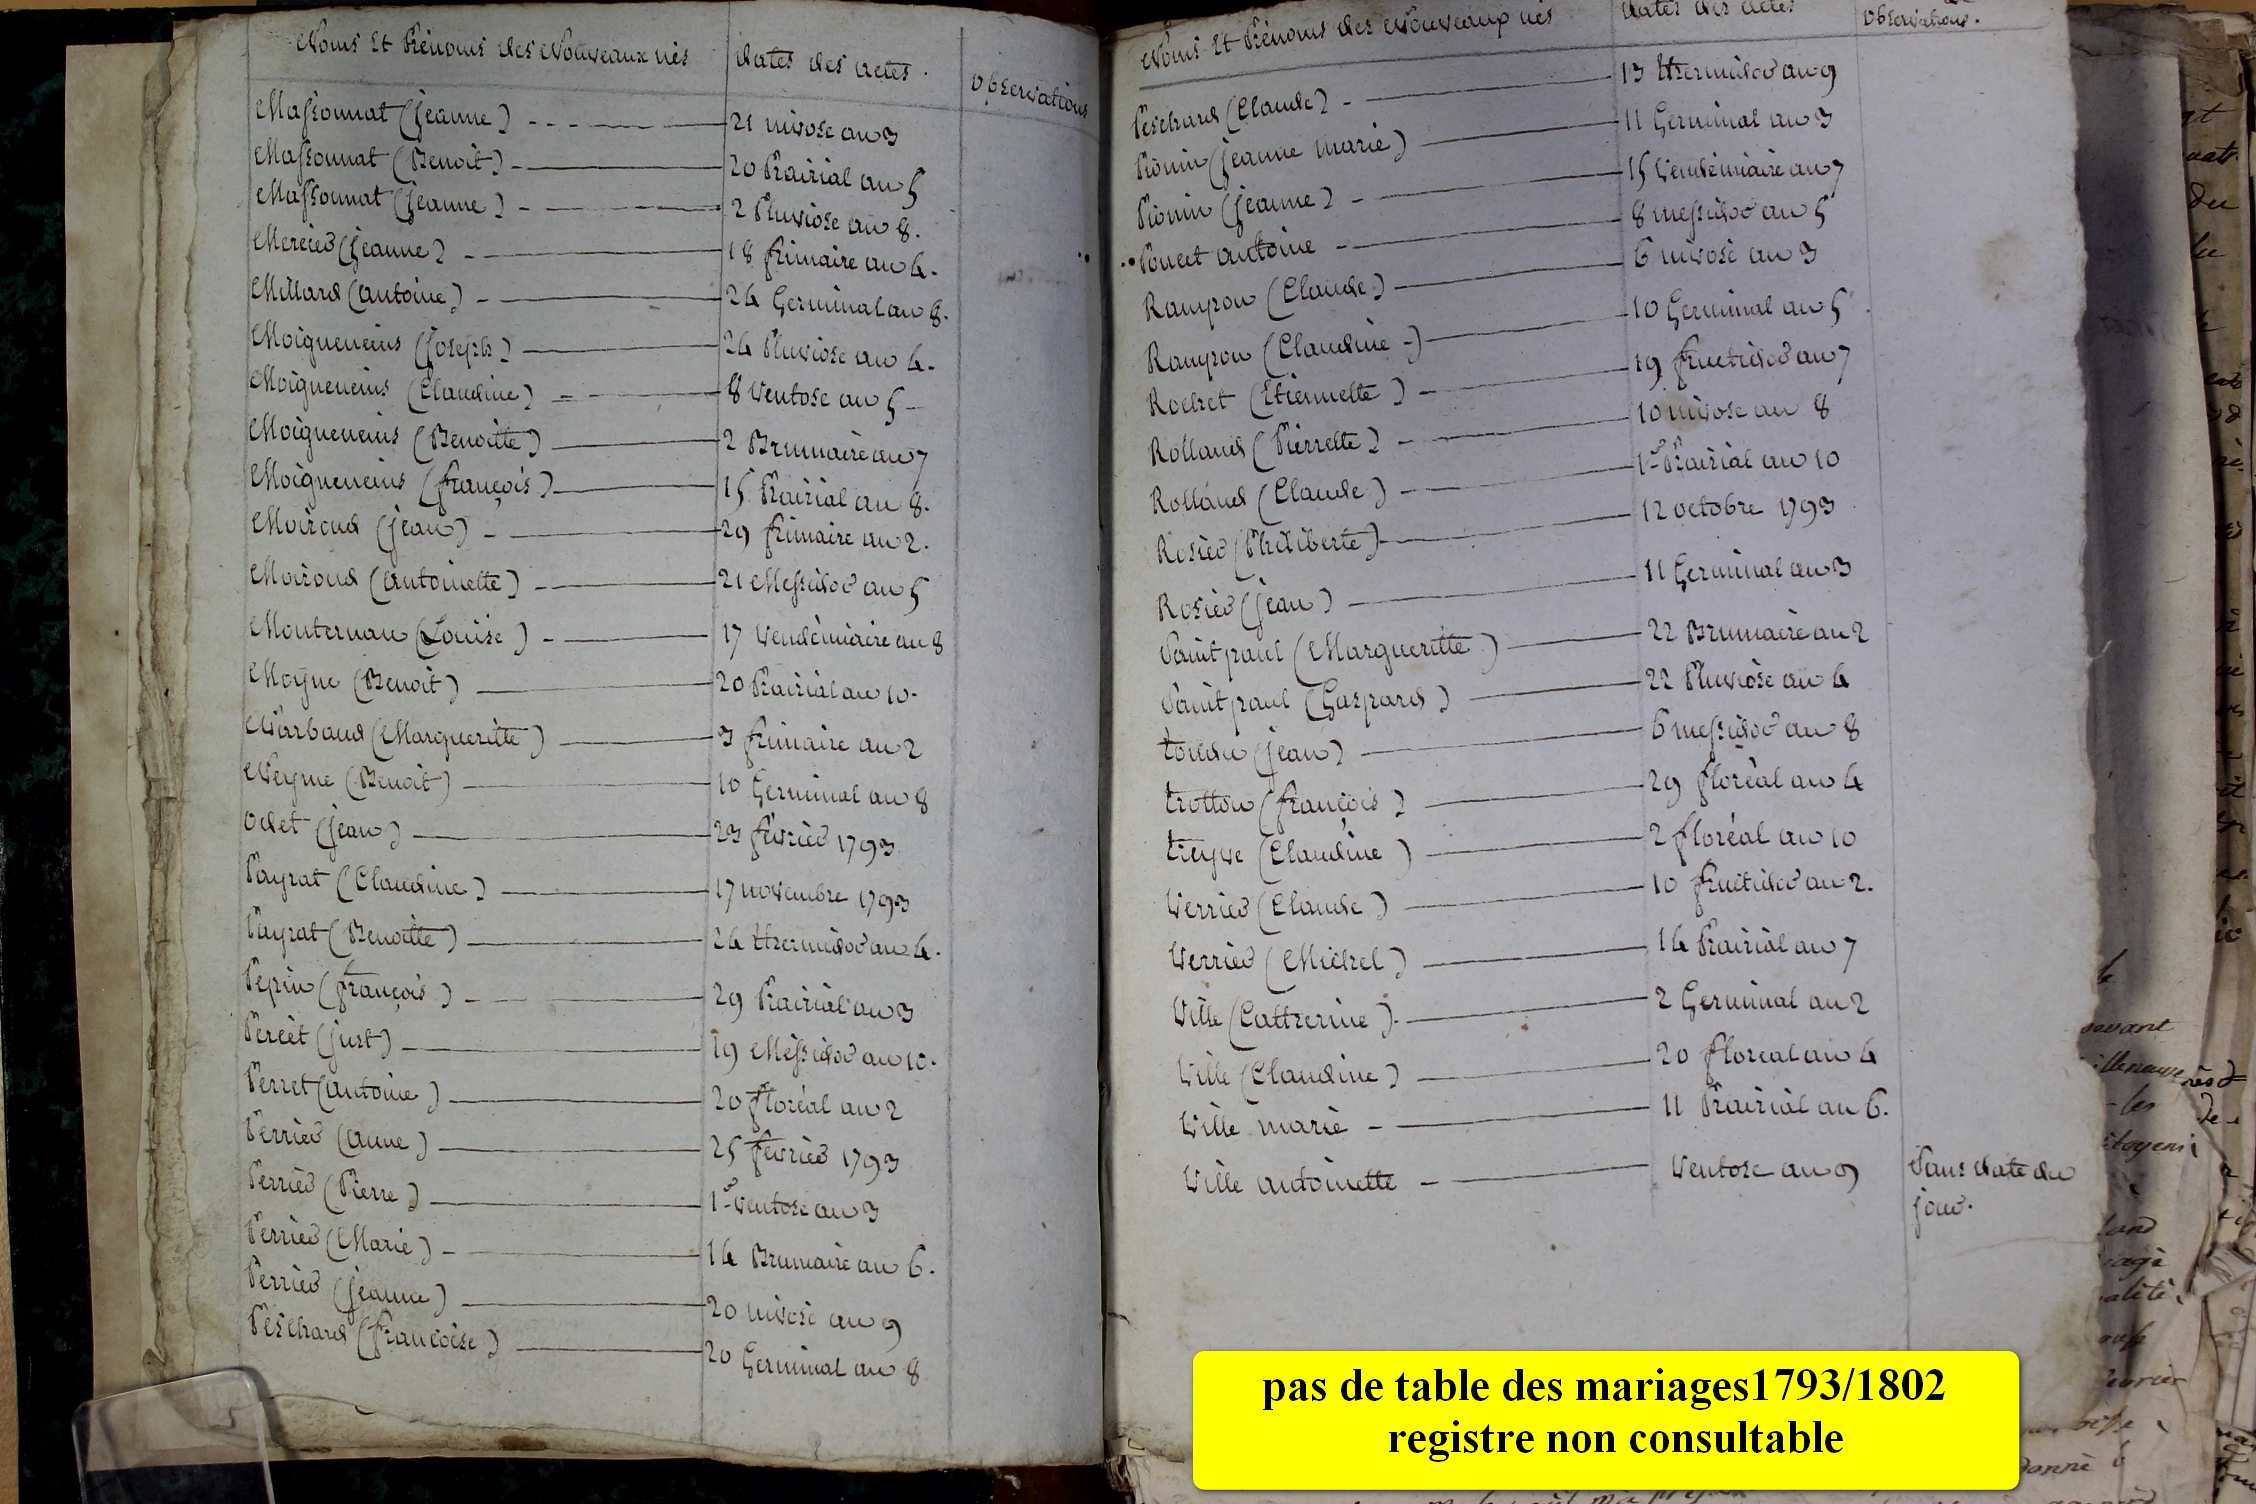 Noms Et Prénoms des Nouveaux nés dates des actes. Observations
Massonnat (jeanne) 21 nivose an 3
Massonnat (Benoit) 20 Prairial an 5
Massonnat (jeanne) 2 Pluviose an 8.
Mercier (jeanne) 18 frimaire an 4.
Millard (antoine) 24 Germinal an 8.
Moigneneins (joseph) 24 Pluviose an 4.
Moigneneins (Claudine) 8 Ventose an 5
Moigneneins (Benoitte) 2 Brumaire an 7
Moigneneins (françois) 15 Prairial an 8.
Moiroud (jean) 29 frimaire an 2.
Moiroud (antoinette) 21 Messidor an 5
Monternau (Louise) 17 Vendémiaire an 8
Moÿne (Benoit) 20 Prairial an 10.
Narbaud (Margueritte) 3 frimaire an 2
Neyme (Benoit) 10 Germinal an 8
Odet (jean) 23 février 1793
Payrat (Claudine) 17 novembre 1793
Payrat (Benoitte) 24 thermidor an 4.
Pepin (françois) 29 Prairial an 3
Percet (just) 19 Messidor an 10.
Perret (antoine) 20 floréal an 2
Perrier (anne) 25 février 1793
Perrier (Pierre) 1er Ventose an 3
Perrier (Marie) 14 Brumaire an 6.
Perrier (jeanne) 20 nivose an 9
Peschard (françoise) 20 Germinal an 8
Noms Et Prénoms des Nouveaux nés dates des actes Observations.
Peschard (Claude) 13 thermidor an 9
Pionin (jeanne marie) 11 Germinal an 3
Pionin (jeanne) 15 Vendémiaire an 7
Poncet antoine 8 messidor an 5
Rampon (Claude) 6 nivose an 3
Rampon (Claudine) 10 Germinal an 5
Rochet (Etiennette) 19 fructidor an 7
Rolland (Pierrette) 10 nivose an 8
Rolland (Claude) 1er Prairial an 10
Rosier (Philiberte) 12 octobre 1793
Rosier (jean) 11 Germinal an 3
Saint paul (Margueritte) 22 Brumaire an 2
Saint paul (Gaspard) 22 Pluviose an 4
(jean) 6 messidor an 8
trotton (françois) 29 floréal an 4
tieyve (Claudine) 2 floréal an 10
Verrier (Claude) 10 fructidor an 2.
Verrier (Michel) 14 Prairial an 7
Ville (Catherine) 2 Germinal an 2
Ville (Claudine) 20 floreal an 4
Ville marie 11 Prairial an 6.
Ville antoinette Ventose an 9 Sans date du
jour.
pas de table des mariages1793/1802
registre non consultable